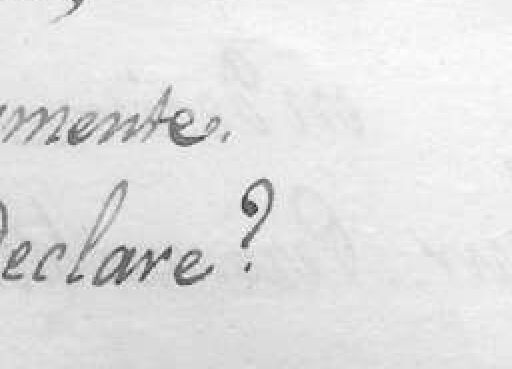 mente.
Declare?